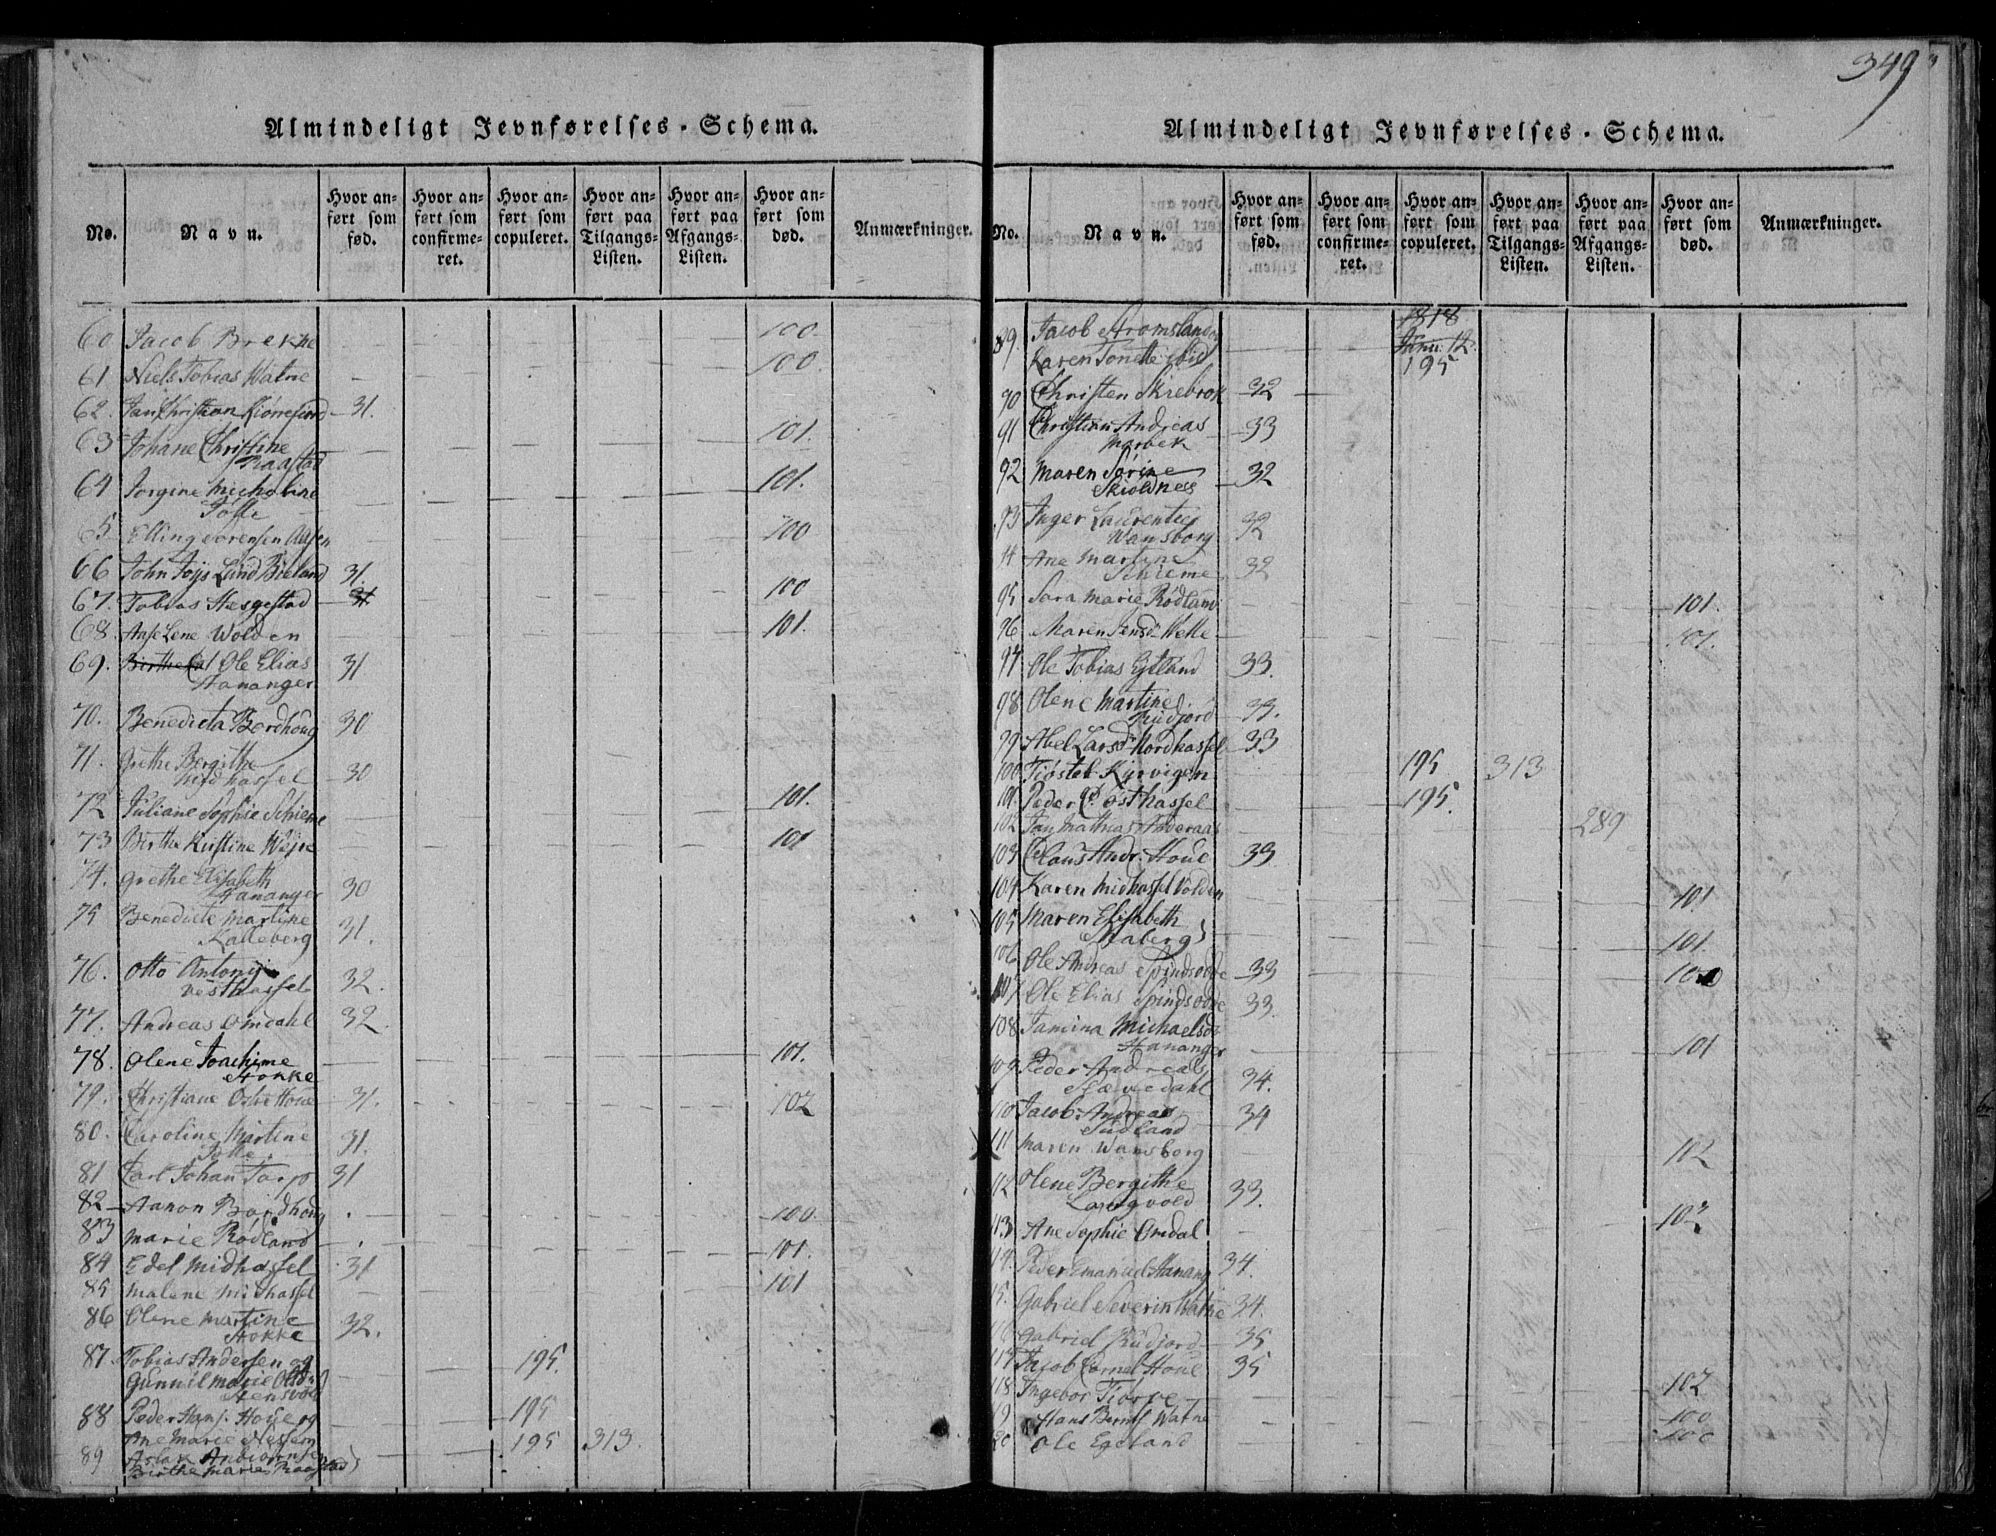 Almindeligt Jevnførelses-Schema.
No. Navn. Hvor anført som fød. Hvor anført som confirmeret. Hvor anført som copuleret. Hvor anført paa Tilgangs-Listen. Hvor anført paa Afgangs-Listen. Hvor anført som død. Anmærkninger.
60 Jacob Brekne 100.
61 Niels Tobias Watne 100.
62. Jan Christian 31.
63 Johane Christine 101.
Raastad
64 Jorgine Micheline 101.
5 Elling Sørensen 100
66 John Lund Bieland 31.
67. Tobias Hesgestad 31 100
68. Lene Wolden 101.
69. Ole Elias 31
Hananger
70. Benedicta Bordhoug 30
71. Grethe Bergithe
Midhassel 30
72 Juliane Sophie Schieme 101.
73 Birthe Kirstine 101
74. Grethe Elisabeth
Hananger 30
75 Benedicte Martine
Kalleberg 31.
76. Otto Antonj
Vesthassel 32.
77. Andreas Omdahl 32
78. Olene Joachime 101.
Stokke
79. Christiane Houe 31. 102
80. Caroline Martine 31.
81 Carl Johan Tarp 31
82 Aanon Bordhoug 100.
83 Marie Rødland 101.
84 Edel Midhassel 31
85 Malene Midhassel 101
86 Olene Martine
Stokke 32.
87. Tobias Andersen og 195.
Gunnil Marie Olsd.
88 Peder Hans. Houe og 195
Ane Marie 195 313.
89 Aslak Anbiørnsen
Birthe Marie Raastad
349
Almindeligt Jevnførelses-Schema.
No. Navn. Hvor anført som fød. Hvor anført som confirmeret. Hvor anført som copuleret. Hvor anført paa Tilgangs-Listen. Hvor anført paa Afgangs-Listen. Hvor anført som død. Anmærkninger.
89. Jacob Stromsland 1818
Karen Tonette ibid 195
90 Christen Skrebrok 32
91 Christian Andreas 33
Marbek
92 Maren Sørine
Skioldnes 32
93 Inger Laurentze
Wansborg 32
Ane Martine
Schieme 32
95 Sara Marie Rødland 101.
96 Maren Jensd. 101.
97 Ole Tobias Egeland 33.
98 Olene Martine
Rudjord 33.
99 Abel Larsd. Nordhassel 33
100 Tiøstel Kirvigen 195 313
101. Peder Østhassel 195.
102 Jan Mathias 289
103 Claus Andr. Houe 33
104 Karen Midhassel Volden 101
105 Maren Elisabeth
Staberg 101.
106 Ole Andreas Spindsodde 33
107 Ole Elias Spindsodde 33.
108 Tamina Michaelsd.
Hananger 101
109 Peder Andreas 34.
110 Jacob Andreas 34
111 Maren Wansborg 102
12 Olene Bergithe
Langvold 33.
113 Ane Sophie Omdal 102
Peder Emanuel Hanang 34.
15. Gabriel Severin Watne 34.
Gabriel Rudjord 35
117 Jacob Cornel. Houe 35
118 Ingebor Tiørve 102
Hans Bernt Watne 100
20 Ole Egeland 100